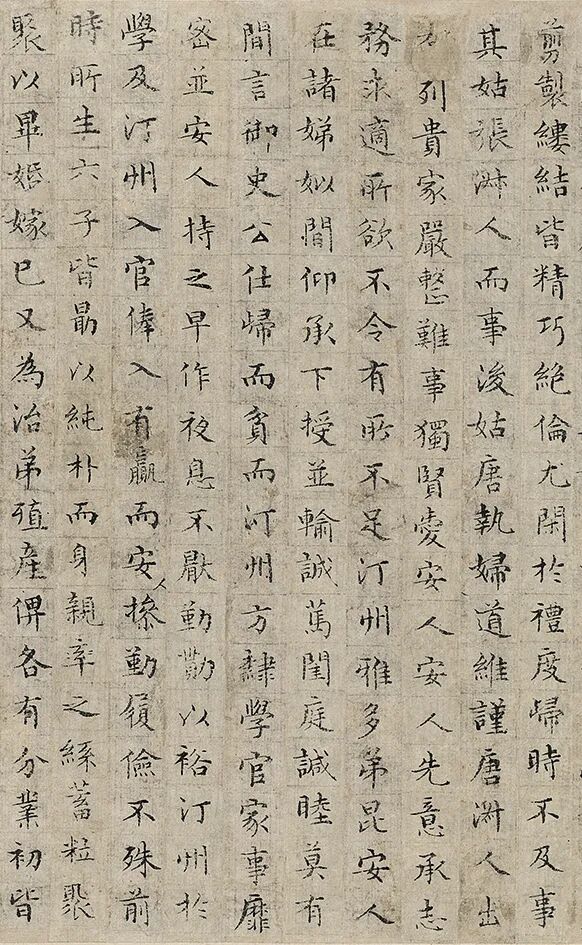 剪製縷結皆精巧絕倫尤閑於禮度歸時不及事
其姑張淋人而事後姑唐執婦道維謹唐淋人出
列貴家嚴整難事獨賢愛安人安人先意承志
務求適所欲不令有所不足汀州雅多弟昆安人
在諸娣姒間仰承下授並輸誠篤閨庭諴睦莫有
間言御史公仕歸而貧而汀州方隸學官家事靡
密並安人持之早作夜息不厭勤勩以裕汀州於
學及汀州入官俸入有贏而安人操勤履儉不殊前
時所生六子皆勗以純朴而身親率之絲蓄粒聚
聚以畢婚嫁已又為治第殖產俾各有分業初皆